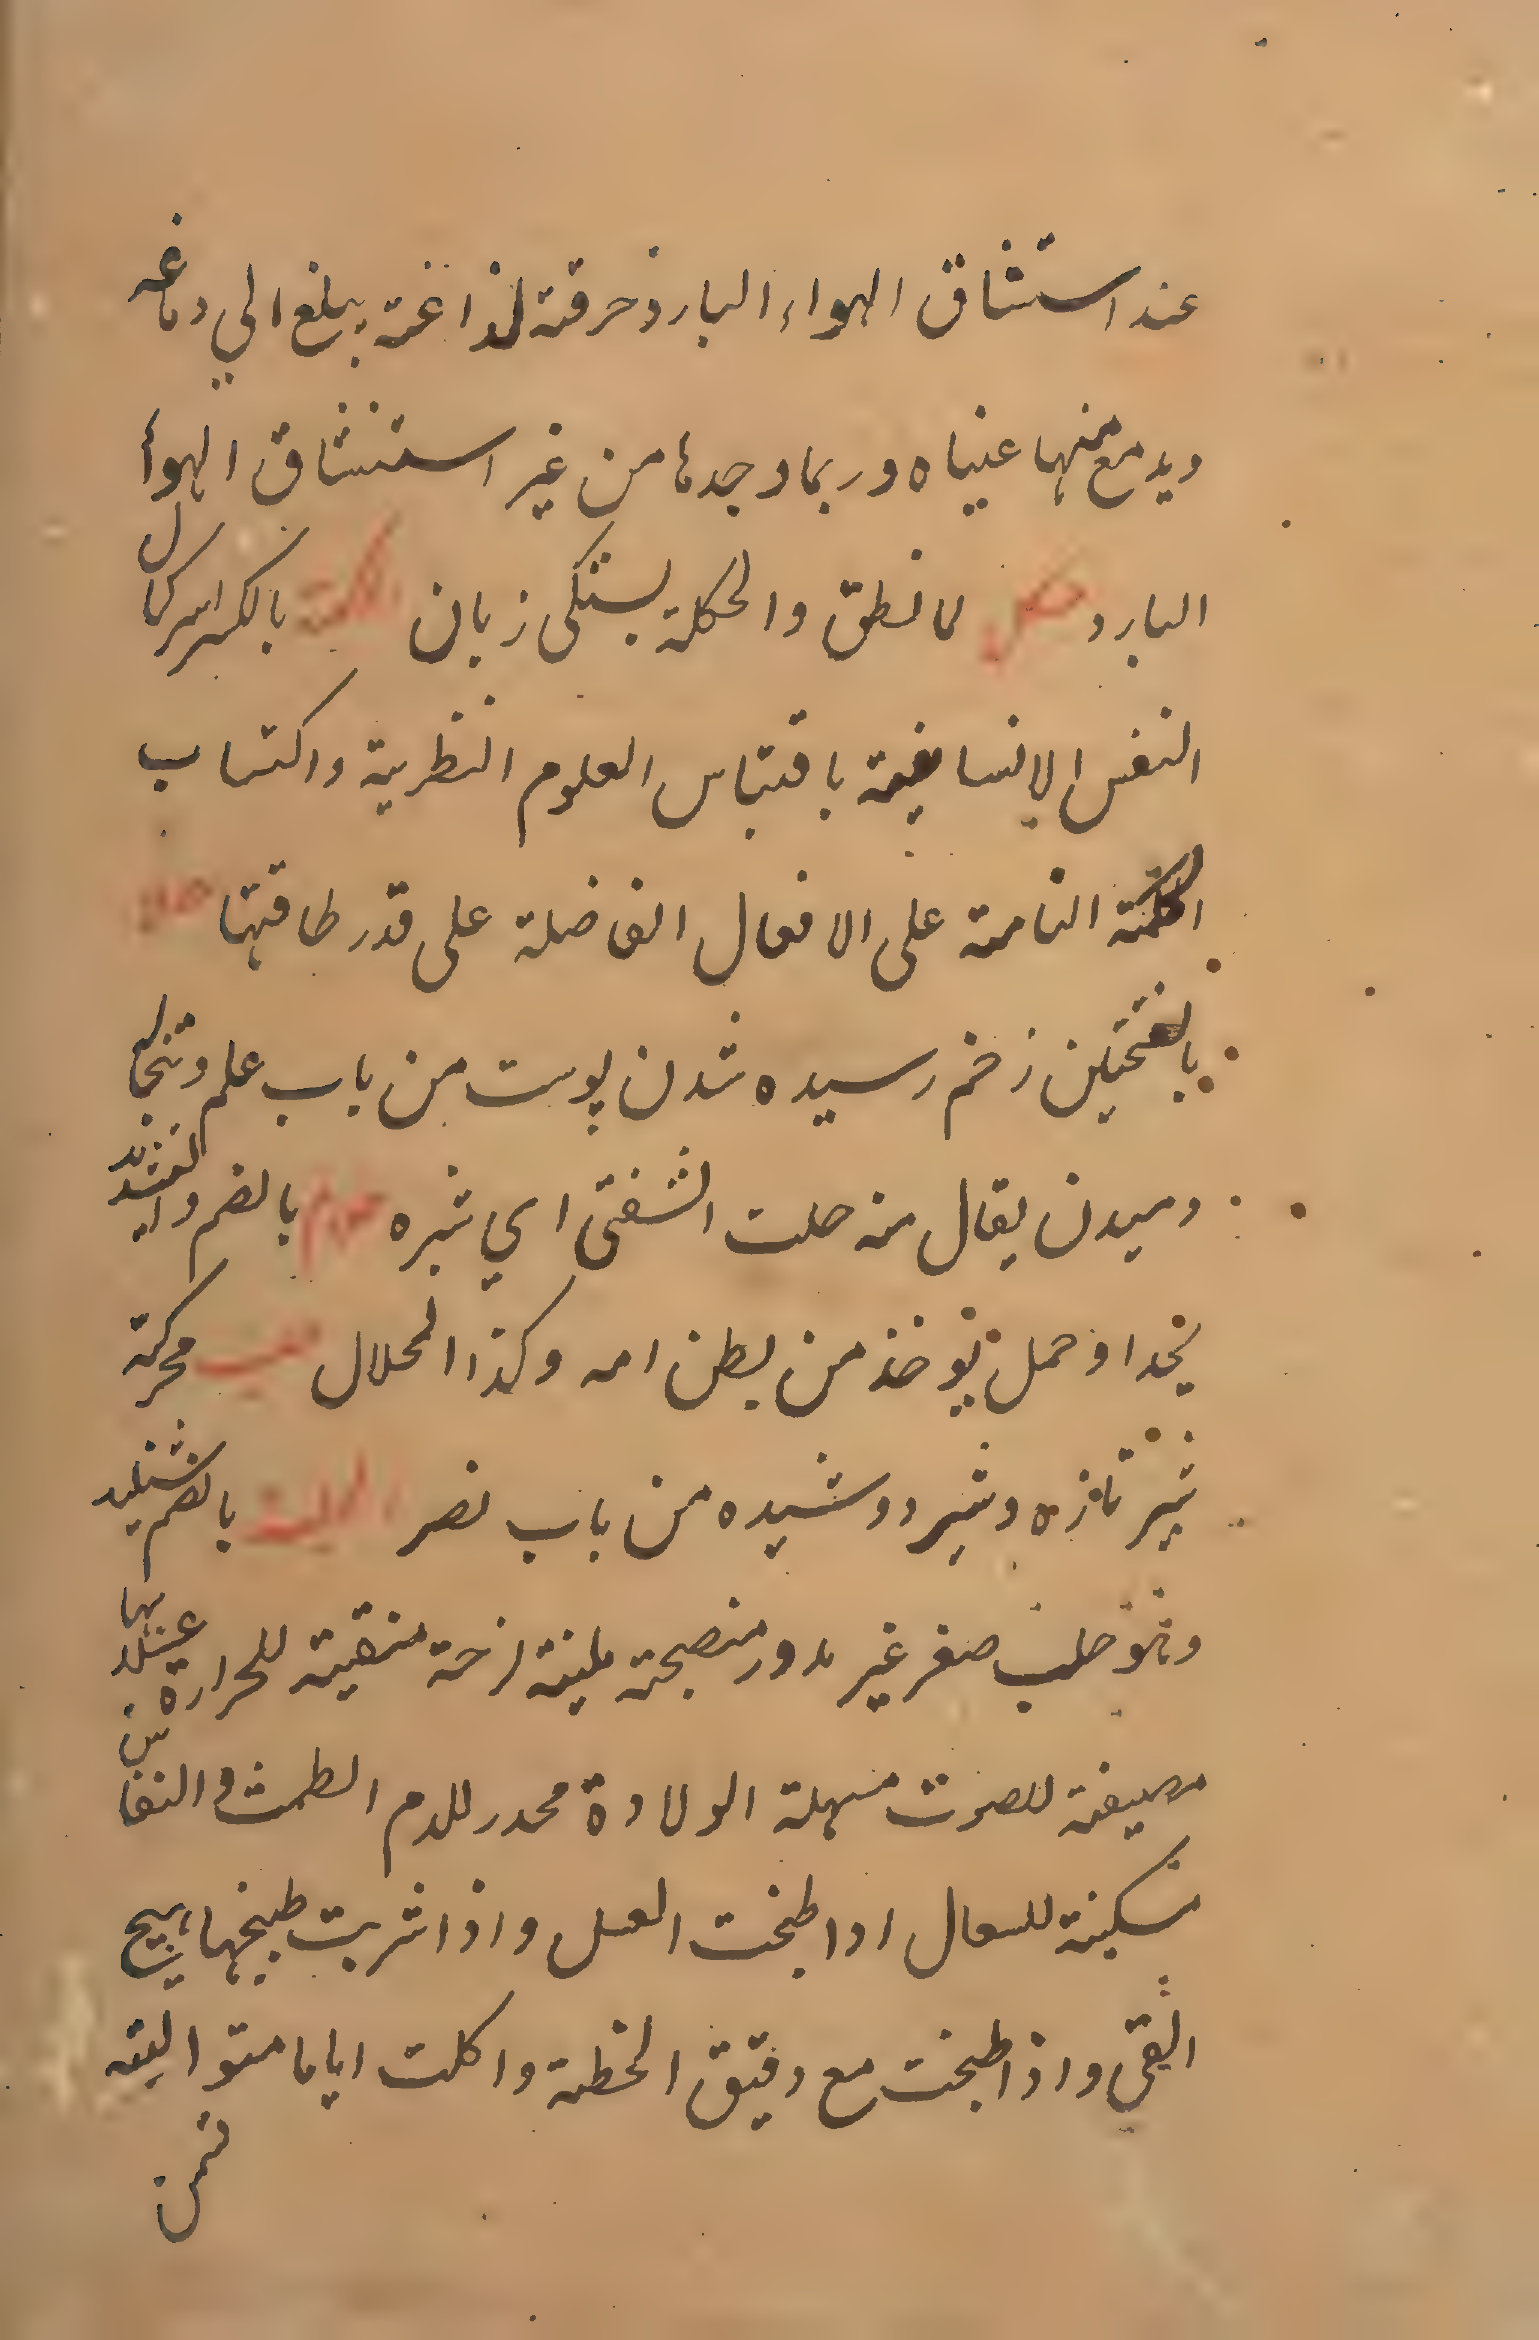 عند استنشاق الهواء البارد حرقة لذاغة يبلغ الي دماغه
ويدمع منها عيناه وربما وجدها من غير استنشاق الهوأ
البارد حكل لا نطق والحكلة بستكى زبان الحكمة بالكسر استكمال
النفس الانسانية باقتباس العلوم النظرية واكتساب
الملكة التامة على الافعال الفاضلة على قدر طاقتها حلا
بالفتحتين زخم رسيده شدن پوست من باب علم وتبخاله
دميدن يقال منه حلت الشفتى اي بثره حلام بالضم والتشديد
جدا وحمل يوخذ من بطن امه وكذا الحلال حلب محركة
شير تازه وشير دوشيده من باب نصر الحلبة بالضم شنليد
وهو حلب صفر غير مدور منضجة ملينة لزجة منقية للحرارة
مصيفة للصوت مسهلة الولادة محدر للدم الطمث والنفاس
مسكينة للسعال اذا طبخت العسل واذا شربت طبيخها يهيج
القي واذا طبخت مع دقيق الحنطة واكلت اياما متوالية